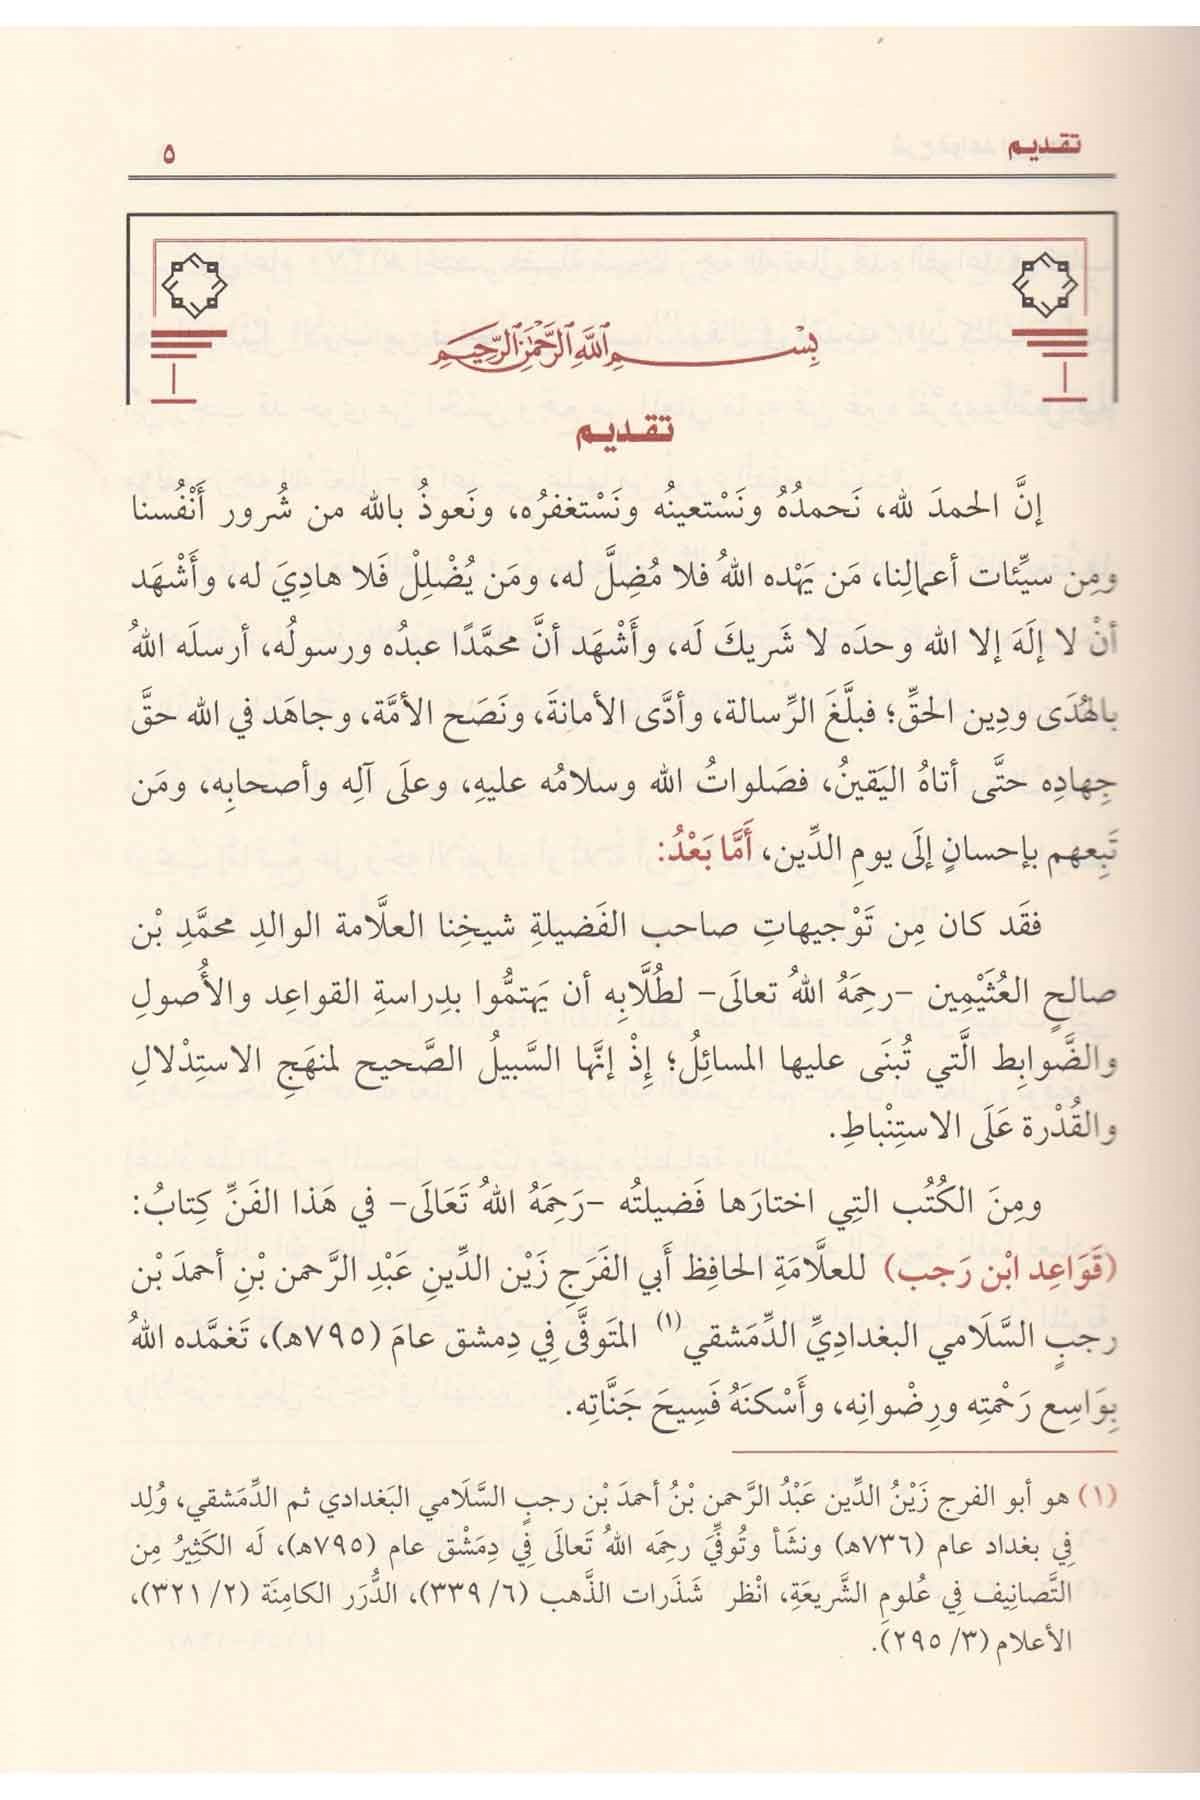 تقديم ٥
بِسْمِ اللَّهِ الرَّحْمَٰنِ الرَّحِيمِ
تقديم
إنَّ الحمدَ لله، نَحمدُهُ ونَسْتعينُه ونَسْتغفرُه، ونَعوذُ بالله من شُرور أَنْفُسنا
ومِن سيِّئات أعمالِنا، مَن يَهْده اللهُ فلا مُضِلَّ له، ومَن يُضْلِلْ فَلا هادِيَ له، وأَشْهَد
أنْ لا إلَهَ إلا الله وحدَه لا شَريكَ لَه، وأَشْهَد أنَّ محمَّدًا عبدُه ورسولُه، أرسلَه اللهُ
بالهُدَى ودِين الحقِّ؛ فبلَّغَ الرِّسالة، وأدَّى الأمانةَ، ونَصَح الأمَّة، وجاهَد في الله حقَّ
جِهادِه حتَّى أتاهُ اليَقينُ، فصَلواتُ الله وسلامُه عليهِ، وعلَى آلِه وأصحابِه، ومَن
تَبِعهم بإحسانٍ إلَى يومِ الدِّين، أَمَّا بَعْدُ:
فقَد كان مِن تَوْجيهاتِ صاحب الفَضيلةِ شيخِنا العلَّامة الوالدِ محمَّدِ بْن
صالحٍ العُثَيْمِين -رحِمَهُ اللهُ تعالَى- لطُلَّابِه أن يَهتمُّوا بدِراسةِ القواعِد والأُصولِ
والضَّوابِط الَّتي تُبنَى عليها المسائلُ؛ إذْ إنَّها السَّبيلُ الصَّحيح لمنهَجِ الاستِدْلالِ
والقُدْرة عَلَى الاستِنْباطِ.
ومِنَ الكُتُب التِي اختارَها فَضيلتُه -رَحِمَهُ اللهُ تَعَالَى- في هَذا الفَنِّ كِتابُ:
(قَوَاعِد ابْن رَجب) للعلَّامَةِ الحافِظ أَبي الفَرَجِ زَيْن الدِّينِ عَبْدِ الرَّحمن بْنِ أحمدَ بْن
رجبٍ السَّلَامي البغداديِّ الدِّمَشقي(١) المتَوفَّى فِي دِمشق عامَ (٧٩٥هـ)، تَغمَّده اللهُ
بِوَاسِع رَحْمتِه ورِضْوانِه، وأَسْكنَهُ فَسِيحَ جَنَّاتِه.
(١) هو أبو الفرج زَيْنُ الدِّين عَبْدُ الرَّحمن بْنُ أحمدَ بْن رجبٍ السَّلَامي البَغدادي ثم الدِّمَشقي، وُلِد
فِي بغداد عام (٧٣٦هـ) ونشَأ وتُوفِّيَ رحِمَه اللهُ تَعالَى فِي دِمَشْق عام (٧٩٥هـ)، لَه الكَثِيرُ مِن
التَّصانِيف فِي عُلومِ الشَّريعَةِ، انْظر شَذَرات الذَّهب (٦/ ٣٣٩)، الدُّرَر الكامِنَة (٢/ ٣٢١)،
الأعلام (٣/ ٢٩٥).